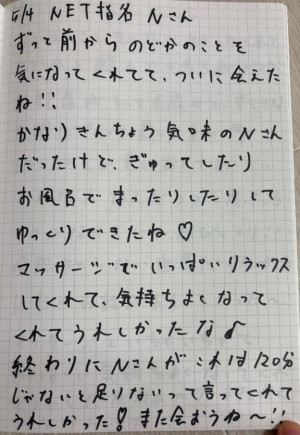 5/4 NET指名 Nさん
ずっと前から のどかのことを
気になってくれてて、ついに会えた
ね!!
かなりきんちょう気味のNさん
だったけど、ぎゅってしたり
お風呂でまったりしたりして
ゆっくりできたね♡
マッサージでいっぱいリラックス
してくれて、気持ちよくなって
くれてうれしかったな♪
終わりにNさんがこれは120分
じゃないと足りないって言ってくれて
うれしかった!また会おうね〜!!